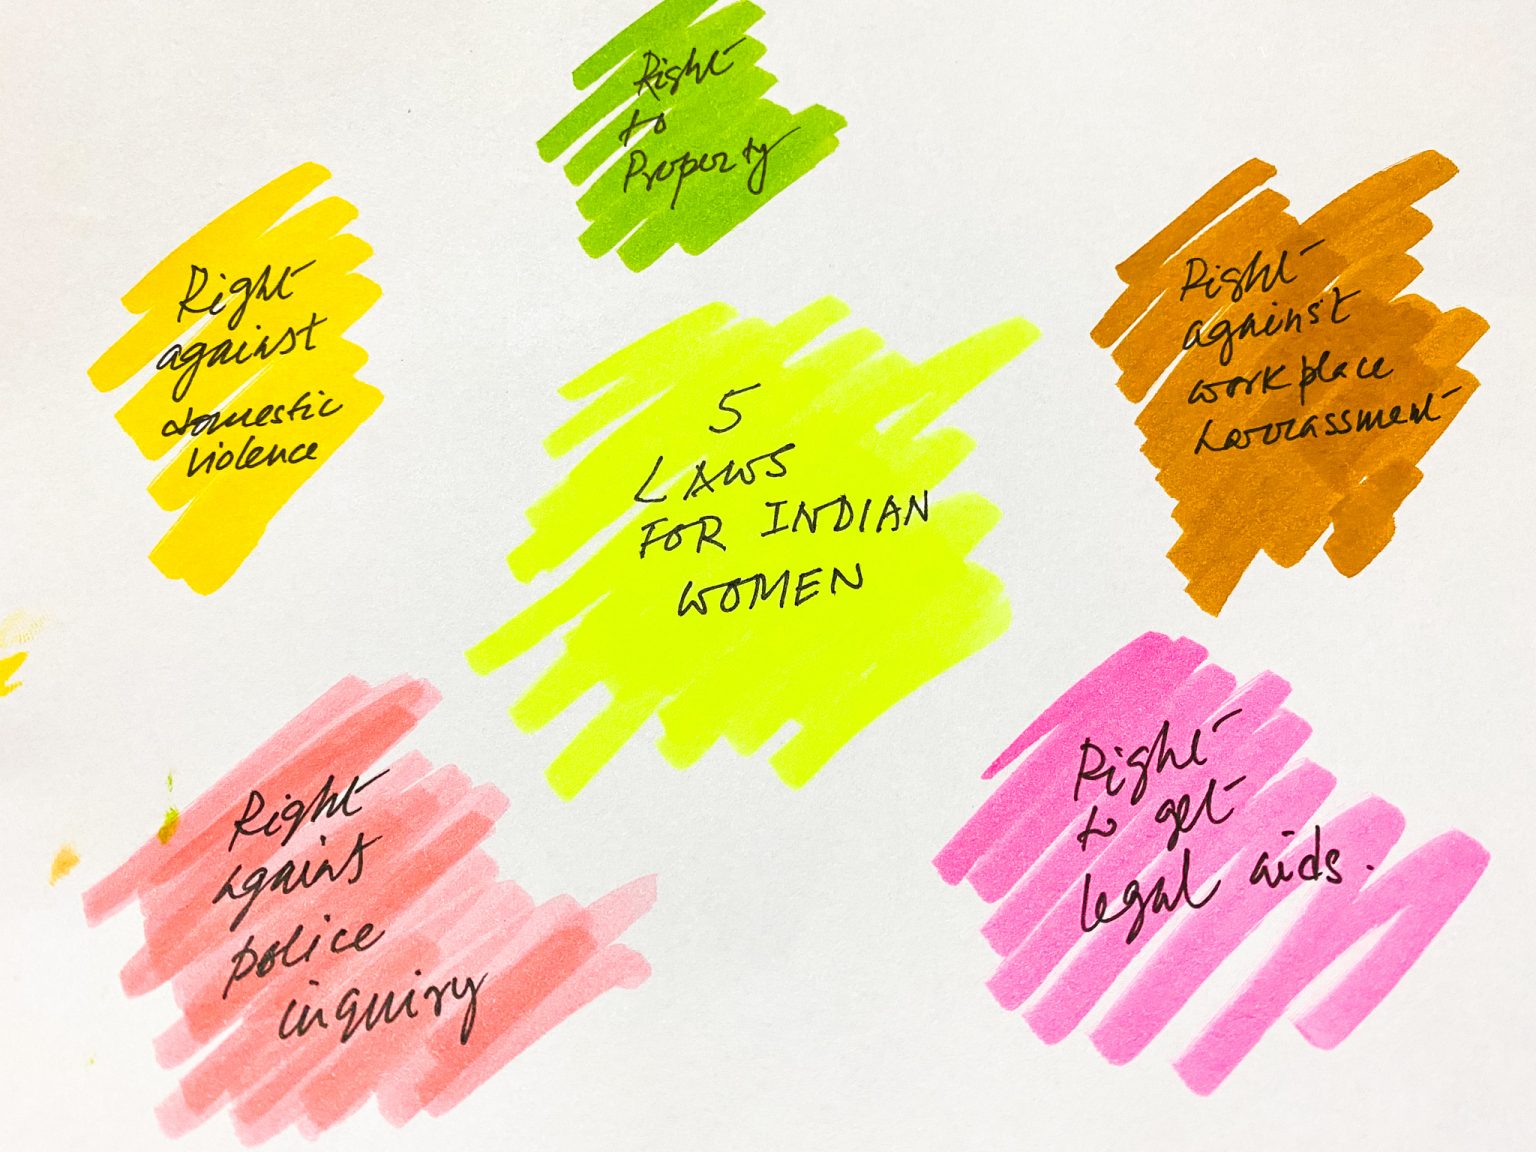 Right
to
Property
Right
against
domestic
violence
5
LAWS
FOR INDIAN
WOMEN
Right
against
workplace
harrassment
Right
against
police
inquiry
Right
to get
legal aids.